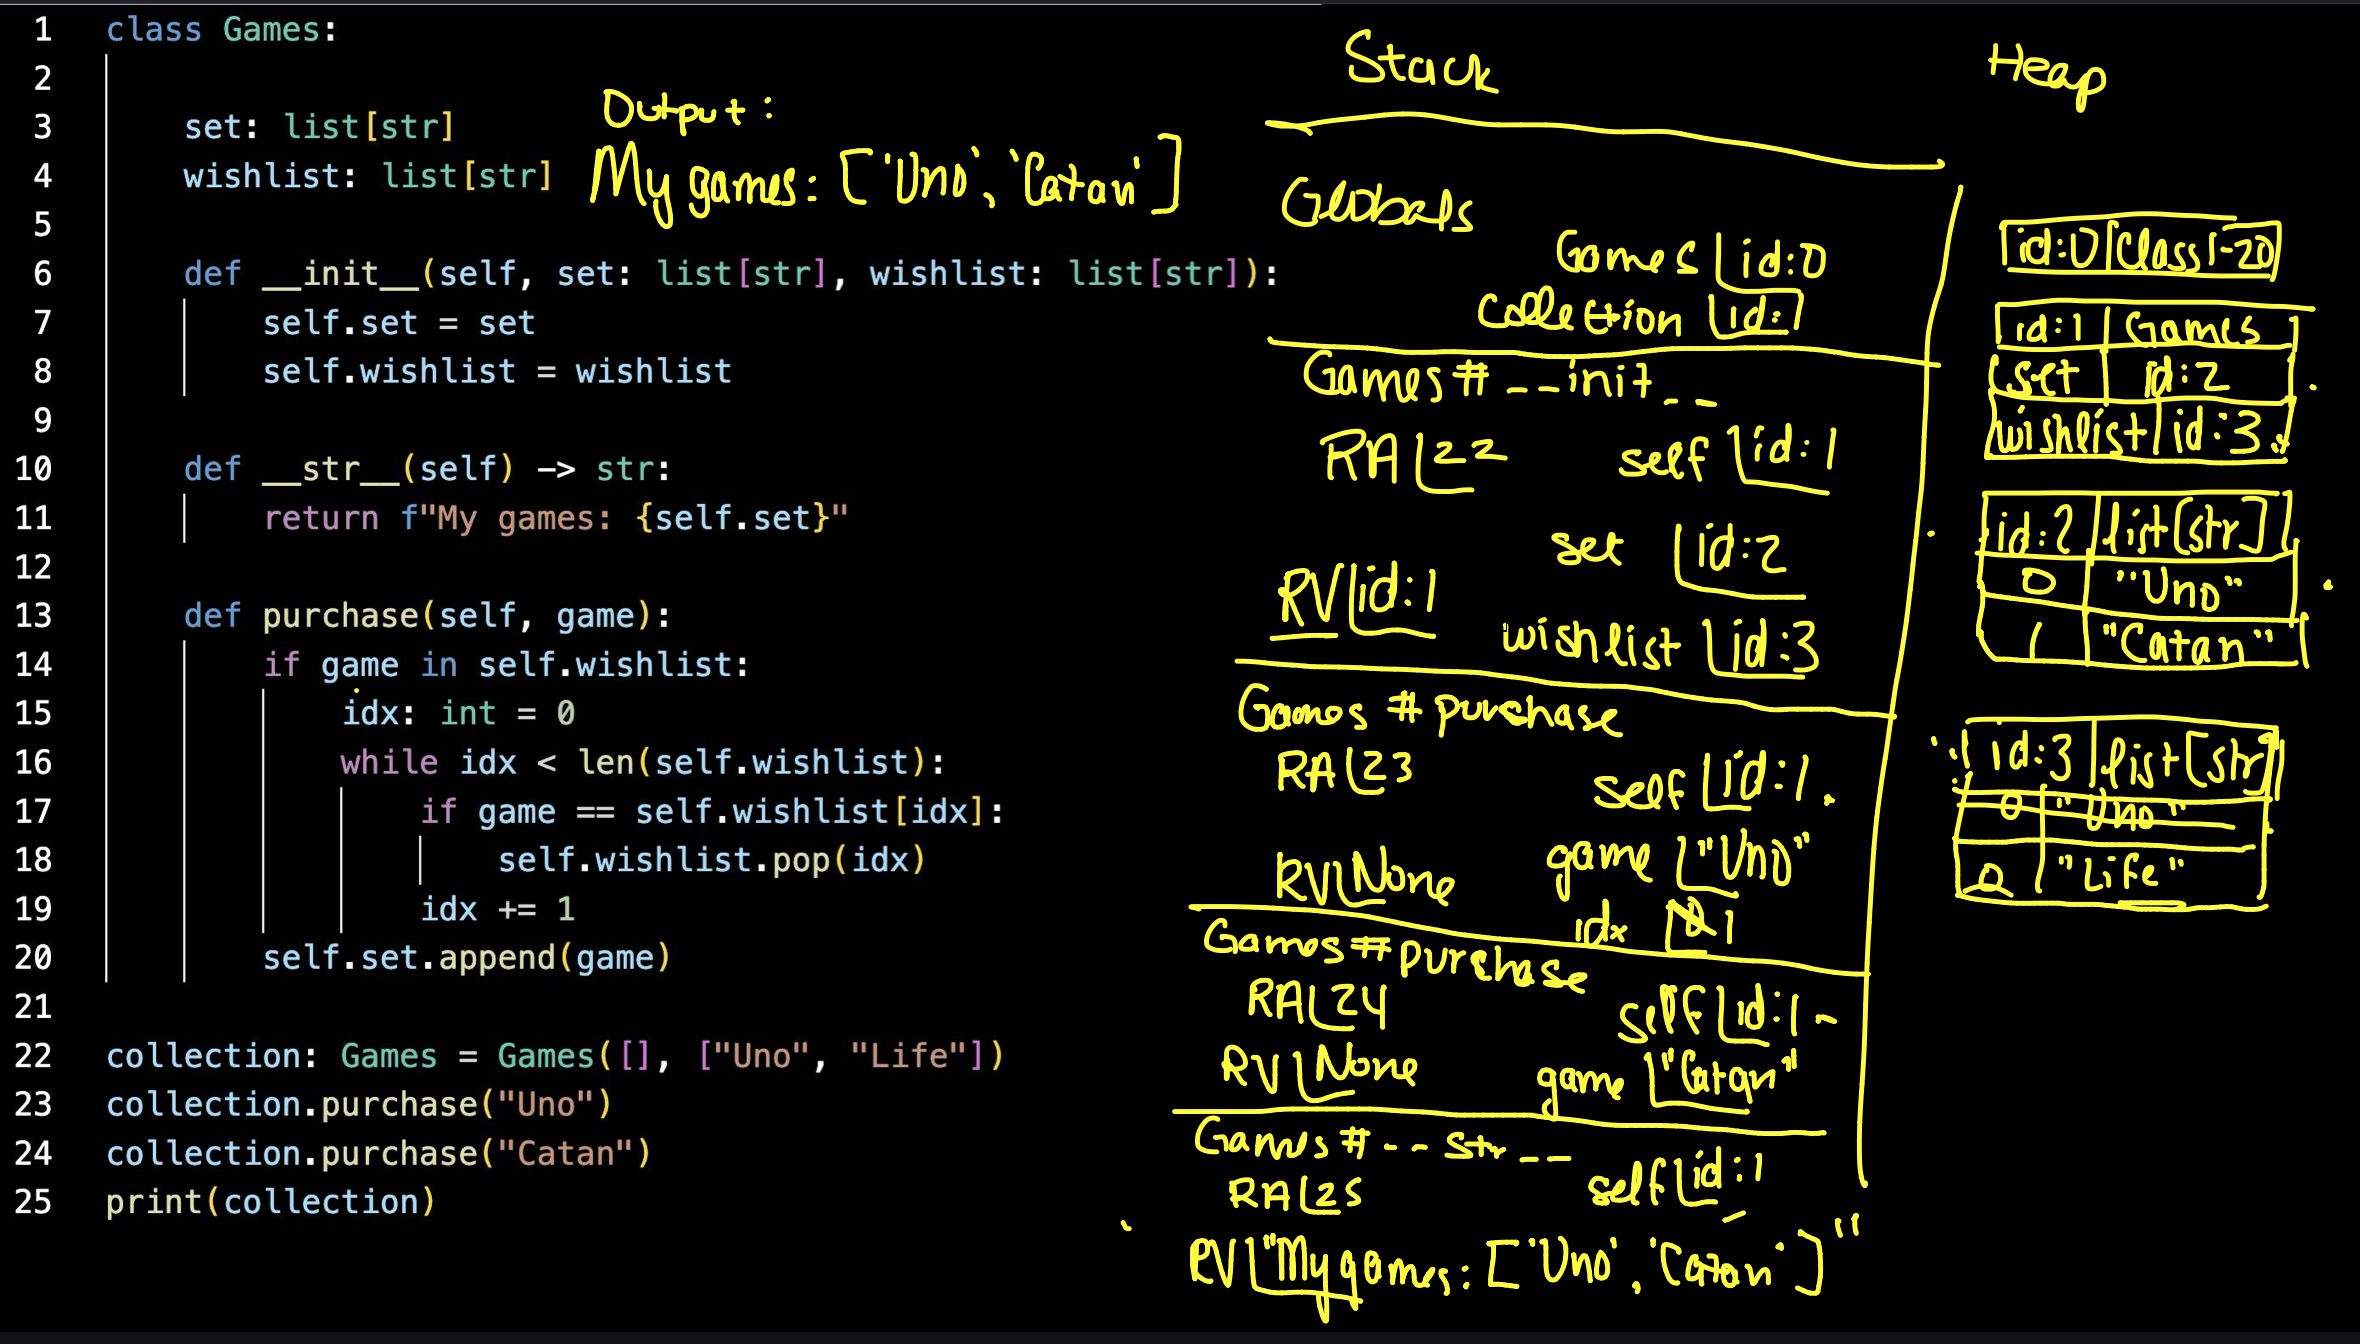 1 class Games:
2
3 set: list[str]
4 wishlist: list[str]
5
6 def __init__(self, set: list[str], wishlist: list[str]):
7 self.set = set
8 self.wishlist = wishlist
9
10 def __str__(self) -> str:
11 return f"My games: {self.set}"
12
13 def purchase(self, game):
14 if game in self.wishlist:
15 idx: int = 0
16 while idx < len(self.wishlist):
17 if game == self.wishlist[idx]:
18 self.wishlist.pop(idx)
19 idx += 1
20 self.set.append(game)
21
22 collection: Games = Games([], ["Uno", "Life"])
23 collection.purchase("Uno")
24 collection.purchase("Catan")
25 print(collection)
Output:
My games: ['Uno', 'Catan']
Stack
Globals
Games id:0
collection id:1
Games # __init__
RA 22 self id:1
set id:2
RV id:1
wishlist id:3
Games # purchase
RA 23 self id:1
game "Uno"
RV None
idx 0 1
Games # purchase
RA 24 self id:1
RV None game "Catan"
Games # __str__
RA 25 self id:1
RV "My games: ['Uno', 'Catan']"
Heap
id:0 Class 1-20
id:1 Games
set id:2
wishlist id:3
id:2 list[str]
0 "Uno"
1 "Catan"
id:3 list[str]
0 "Uno"
0 "Life"